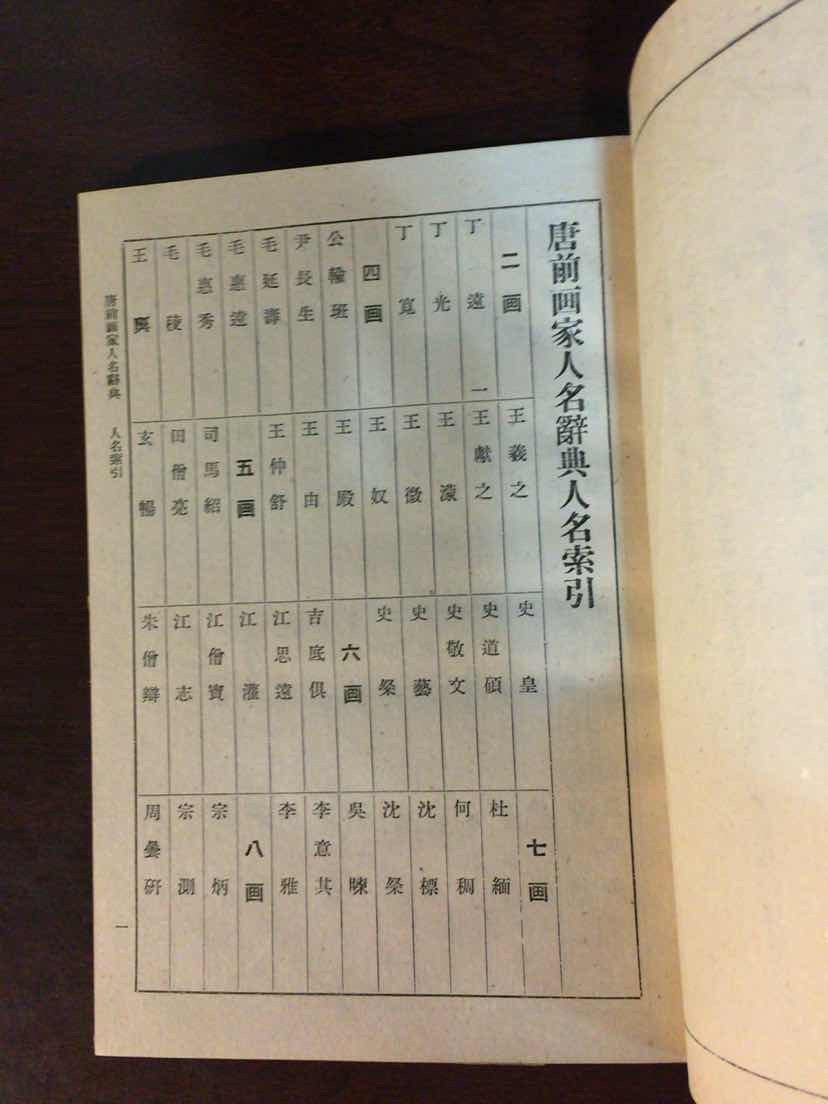 唐前画家人名辭典人名索引
二画
丁遠 一
丁光
丁寬
四画
公輸班
尹長生
毛延壽
毛惠遠
毛惠秀
毛稜
王廙
王羲之
王獻之
王濛
王徵
王奴
王殿
王由
王仲舒
五画
司馬紹
田僧亮
玄暢
史皇
史道碩
史敬文
史藝
史粲
六画
吉底俱
江思遠
江灌
江僧寶
江志
朱僧辯
七画
杜緬
何稠
沈標
沈粲
吳暕
李意其
李雅
八画
宗炳
宗測
周曇硏
唐前畫家人名辭典 人名索引
一